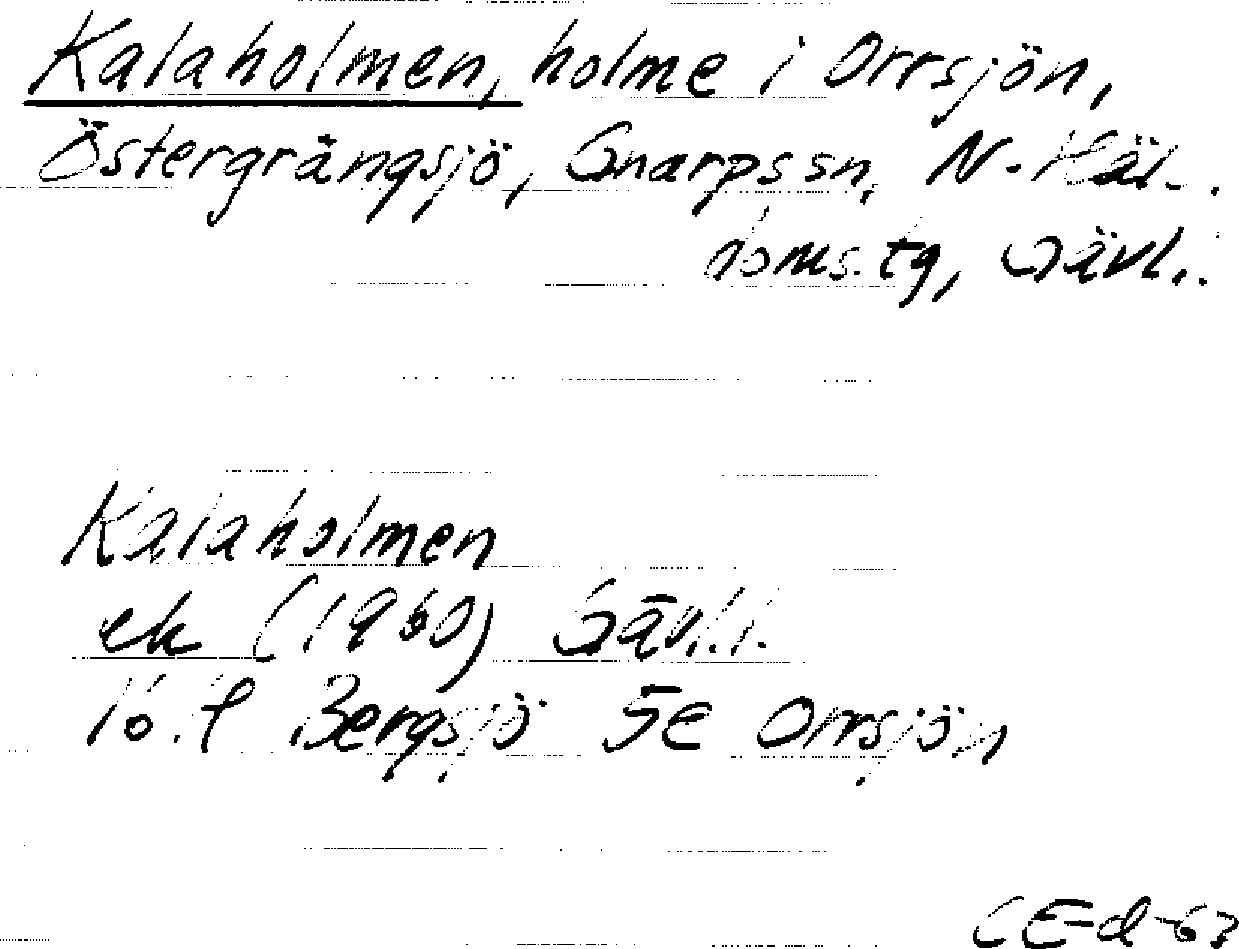 Kalaholmen, holme i Orrsjön,
Östergrängsjö, Gnarps sn, N. Häl-
doms. tg, Gävl.
Kalaholmen
ek (1960) Gävl. l.
16. f Bergsjö 5e Orrsjön